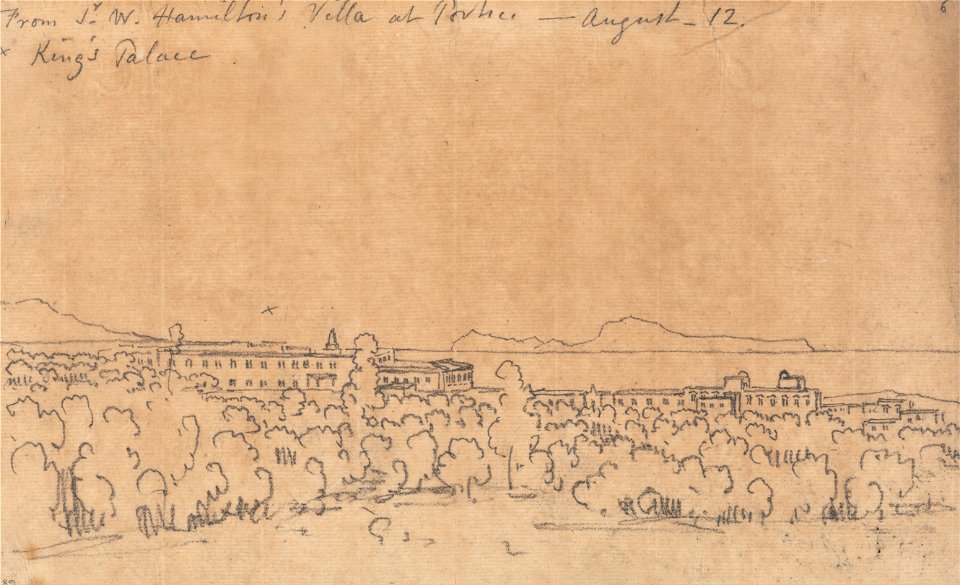 From Sr. W. Hamilton's Villa at Portici — August - 12.
6
x King's Palace.
x